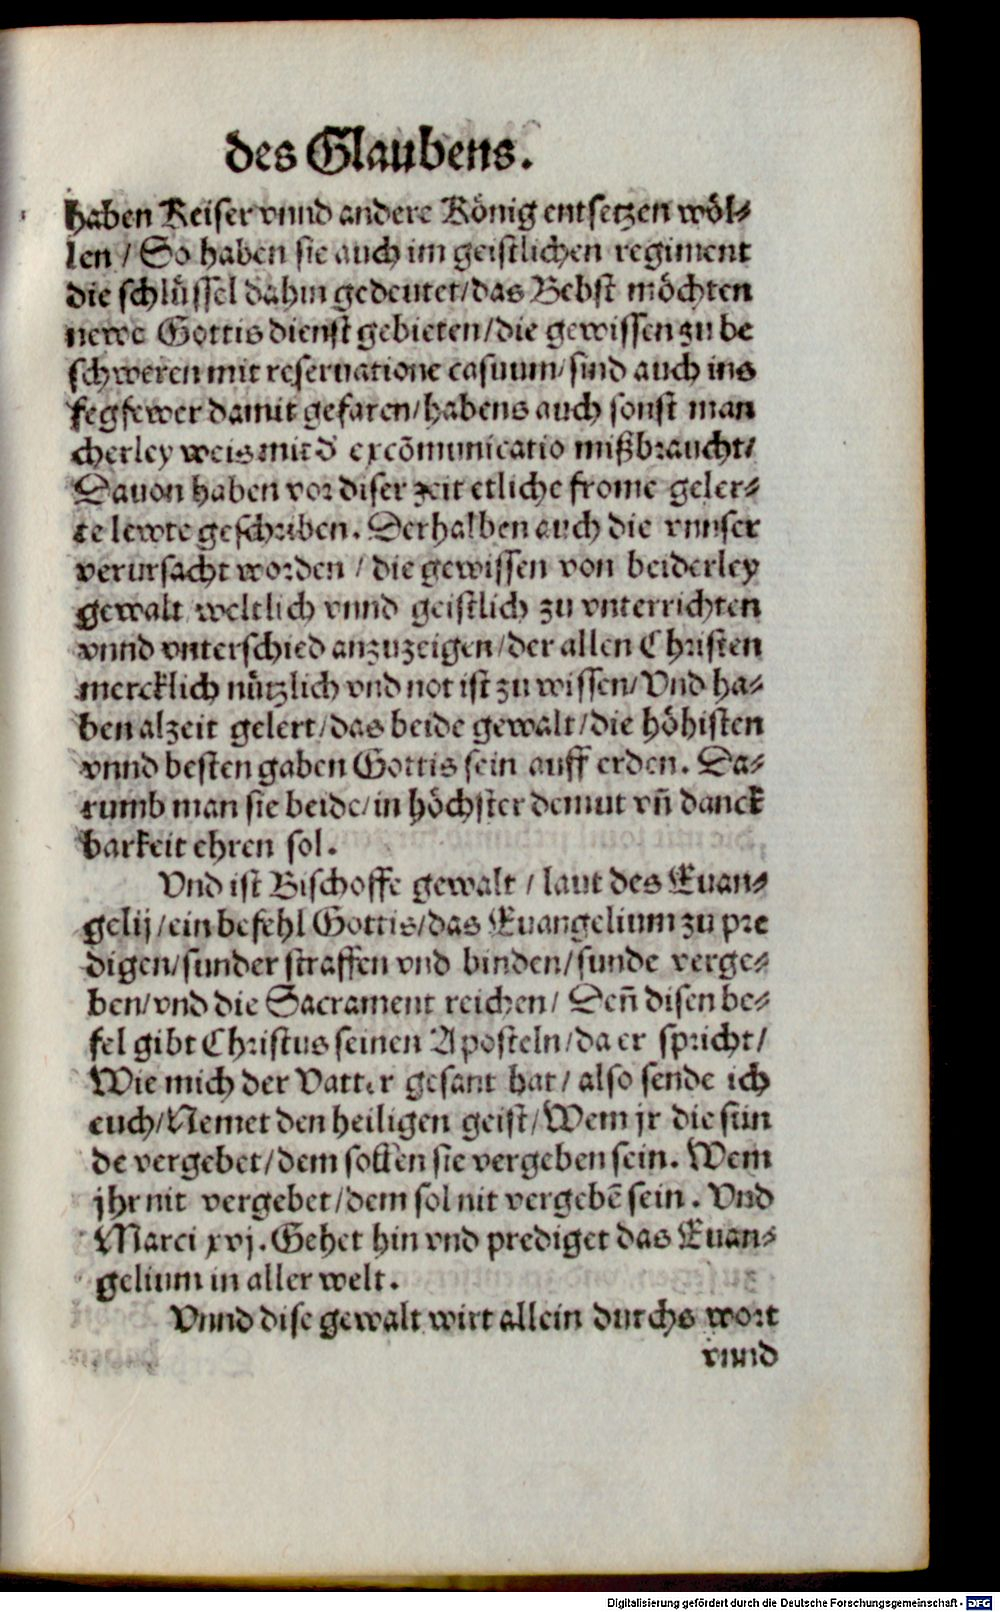 des Glaubens.
haben Keiser vnnd andere König entsetzen wöl⸗
len / So haben sie auch im geistlichen regiment
die schlüssel dahin gedeutet/das Bebst möchten
newe Gottis dienst gebieten/die gewissen zu be
schweren mit reseruatione casuum/sind auch ins
fegfewer damit gefaren/habens auch sonst man
cherley weis mit d' excōmunicatio mißbraucht/
Dauon haben vor diser zeit etliche frome geler⸗
te lewte geschriben. Derhalben auch die vnnser
verursacht worden / die gewissen von beiderley
gewalt weltlich vnnd geistlich zu vnterrichten
vnnd vnterschied anzuzeigen/der allen Christen
mercklich nützlich vnd not ist zu wissen/Vnd ha⸗
ben alzeit gelert/das beide gewalt/die höhisten
vnnd besten gaben Gottis sein auff erden. Da⸗
rumb man sie beide/in höchster demut vñ danck
barkeit ehren sol.
Vnd ist Bischoffe gewalt / laut des Euan⸗
gelij/ein befehl Gottis/das Euangelium zu pre
digen/sunder straffen vnd binden/sunde verge⸗
ben/vnd die Sacrament reichen/ Deñ disen be⸗
fel gibt Christus seinen Aposteln/da er spricht/
Wie mich der Vatter gesant hat/ also sende ich
euch/Nemet den heiligen geist/Wem jr die sün
de vergebet/dem sollen sie vergeben sein. Wem
jhr nit vergebet/dem sol nit vergebē sein. Vnd
Marci xvj. Gehet hin vnd prediget das Euan⸗
gelium in aller welt.
Vnnd dise gewalt wirt allein durchs wort
vnnd
Digitalisierung gefördert durch die Deutsche Forschungsgemeinschaft - DFG